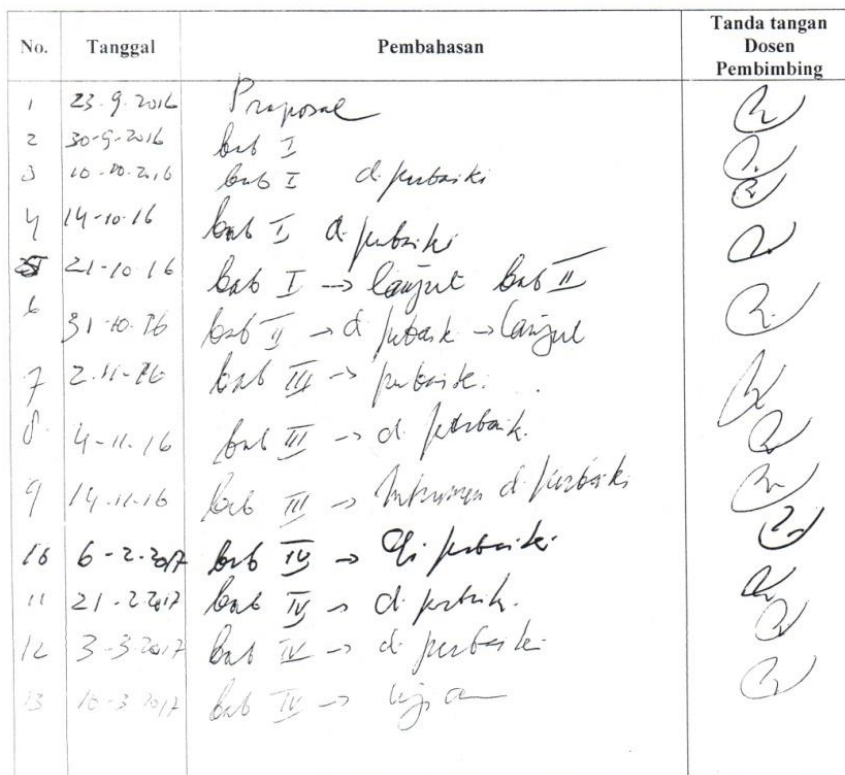 No. Tanggal Pembahasan Tanda tangan Dosen Pembimbing
1 23.9.2016 Proposal
2 30-9-2016 bab I
3 10-10.2016 bab I diperbaiki
4 14-10.16 bab I diperbaiki
5 21-10.16 bab I → lanjut bab II
6 31-10.16 bab II → diperbaik → lanjut
7 2.11-16 bab III → perbaiki.
8. 4-11.16 bab III → diperbaik.
9 14.11.16 bab III → Intrumen diperbaiki
10 6-2-2017 bab IV → diperbaiki
11 21-2-2017 bab IV → diperbaik.
12 3-3-2017 bab IV → diperbaiki
13 10-3-2017 bab IV → Ujian